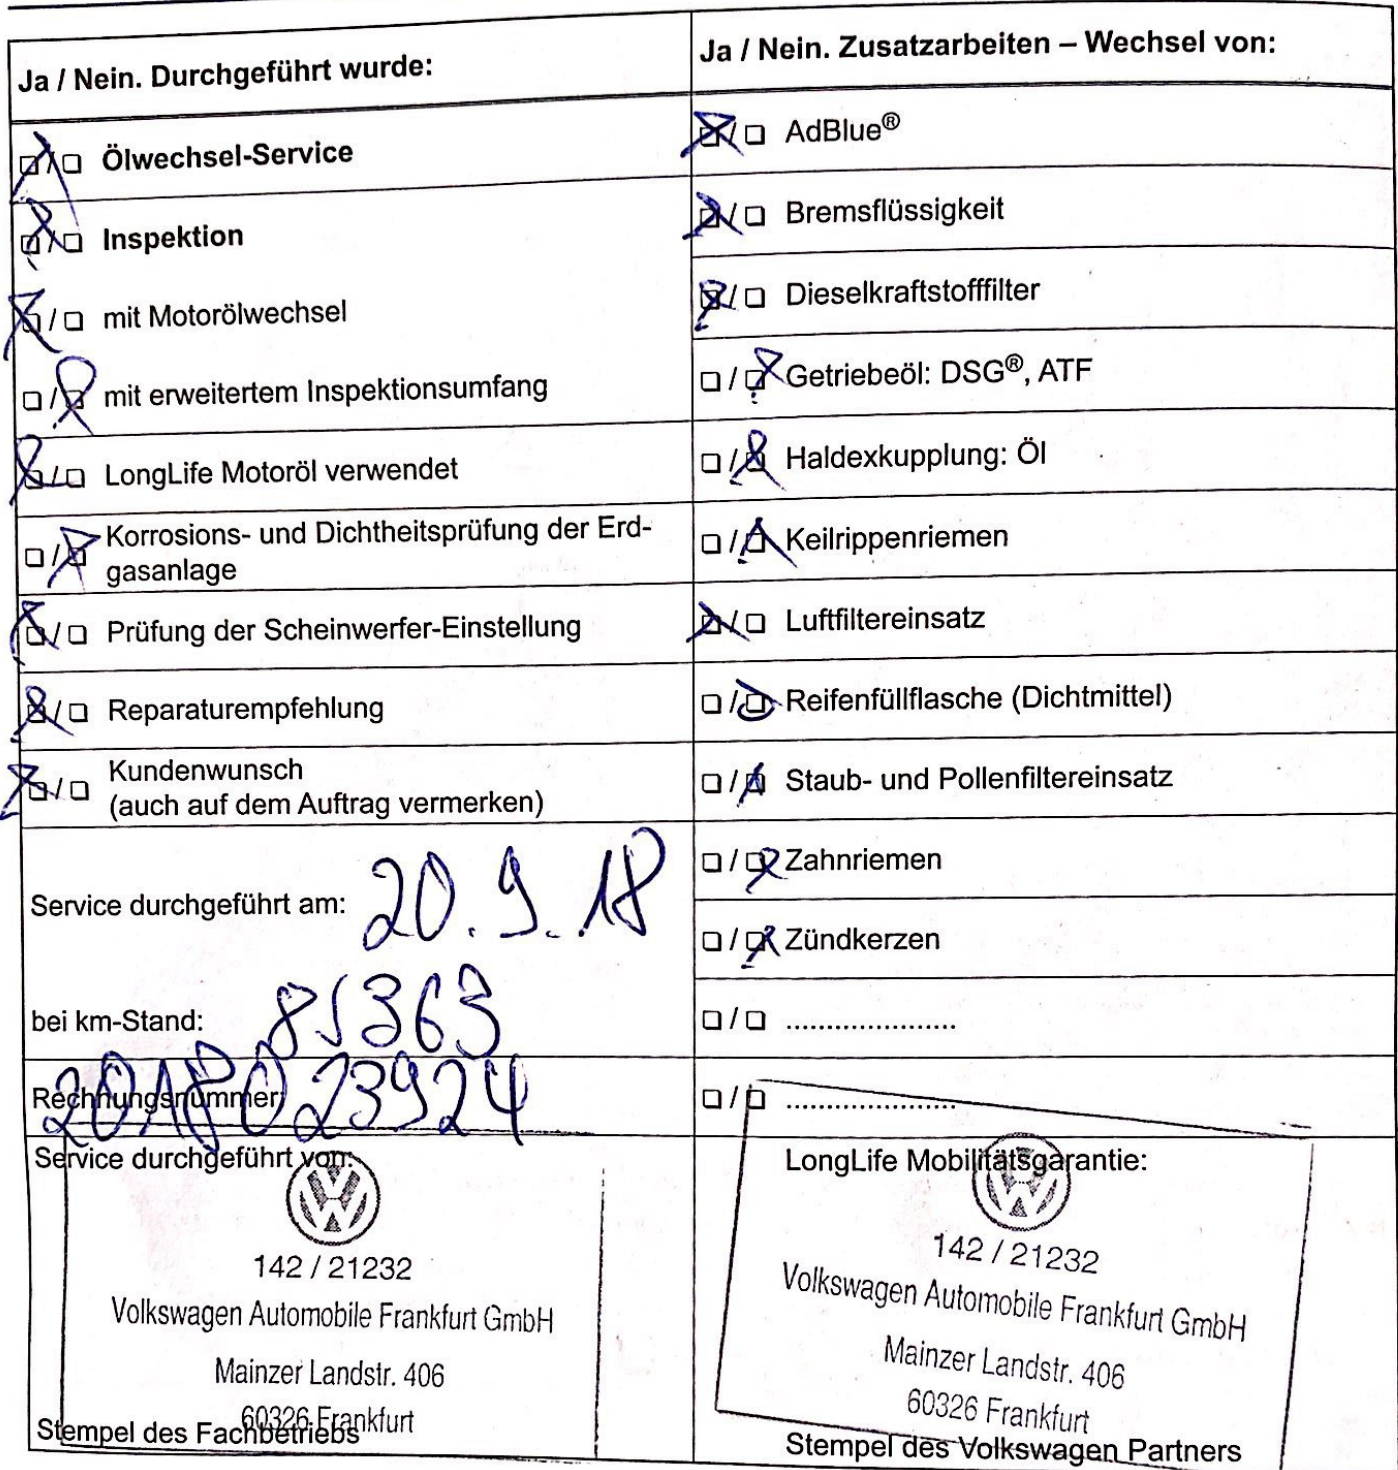 Ja / Nein. Durchgeführt wurde:
☒/☐ Ölwechsel-Service
☒/☐ Inspektion
☒/☐ mit Motorölwechsel
☐/☒ mit erweitertem Inspektionsumfang
☒/☐ LongLife Motoröl verwendet
☐/☒ Korrosions- und Dichtheitsprüfung der Erd-
gasanlage
☒/☐ Prüfung der Scheinwerfer-Einstellung
☒/☐ Reparaturempfehlung
☒/☐ Kundenwunsch
(auch auf dem Auftrag vermerken)
Service durchgeführt am: 20.9.18
bei km-Stand: 85363
Rechnungsnummer:
2018023924
Service durchgeführt von:
VW
142 / 21232
Volkswagen Automobile Frankfurt GmbH
Mainzer Landstr. 406
60326 Frankfurt
Stempel des Fachbetriebs
Ja / Nein. Zusatzarbeiten – Wechsel von:
☒/☐ AdBlue®
☒/☐ Bremsflüssigkeit
☒/☐ Dieselkraftstofffilter
☐/☒ Getriebeöl: DSG®, ATF
☐/☒ Haldexkupplung: Öl
☐/☒ Keilrippenriemen
☒/☐ Luftfiltereinsatz
☐/☒ Reifenfüllflasche (Dichtmittel)
☐/☒ Staub- und Pollenfiltereinsatz
☐/☒ Zahnriemen
☐/☒ Zündkerzen
☐/☐ .....................
☐/☐ .....................
LongLife Mobilitätsgarantie:
VW
142 / 21232
Volkswagen Automobile Frankfurt GmbH
Mainzer Landstr. 406
60326 Frankfurt
Stempel des Volkswagen Partners